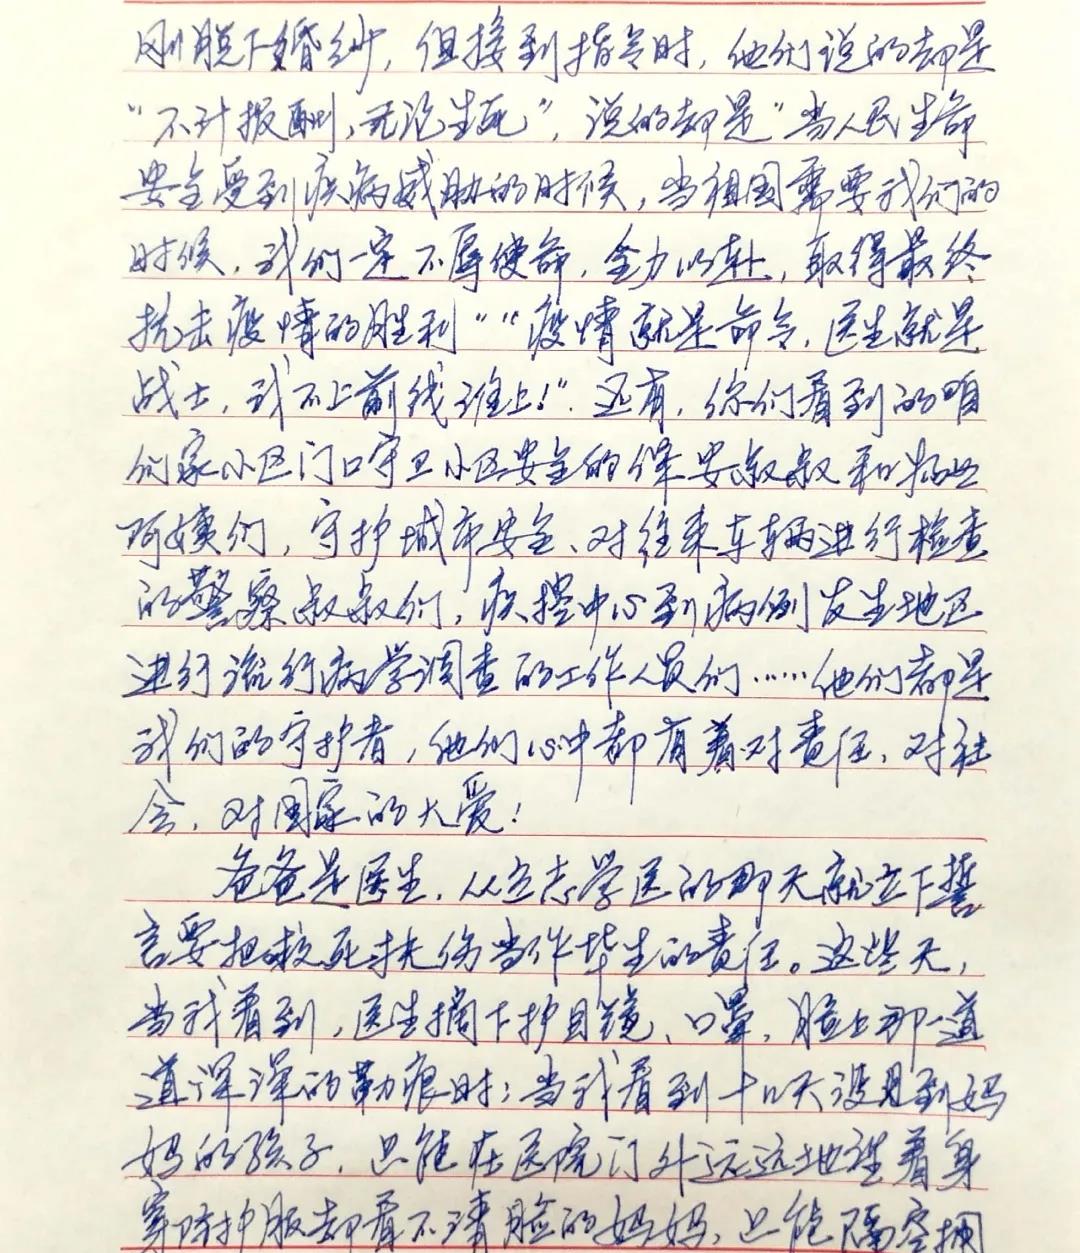 刚脱下婚纱，但接到指令时，他们说的却是
“不计报酬，无论生死”，说的却是“当人民生命
安全受到疾病威胁的时候，当祖国需要我们的
时候，我们一定不辱使命，全力以赴，取得最终
抗击疫情的胜利”“疫情就是命令，医生就是
战士，我不上前线谁上！”。还有，你们看到的咱
们家小区门口守卫小区安全的保安叔叔和物业
阿姨们，守护城市安全、对往来车辆进行检查
的警察叔叔们，疾控中心到病例发生地区
进行流行病学调查的工作人员们……他们都是
我们的守护者，他们心中都有着对责任、对社
会、对国家的大爱！
爸爸是医生，从立志学医的那天就立下誓
言要把救死扶伤当作毕生的责任。这些天，
当我看到，医生摘下护目镜、口罩，脸上那一道
道深深的勒痕时；当我看到十几天没见到妈
妈的孩子，只能在医院门外远远地望着身
穿防护服却看不清脸的妈妈，只能隔空拥